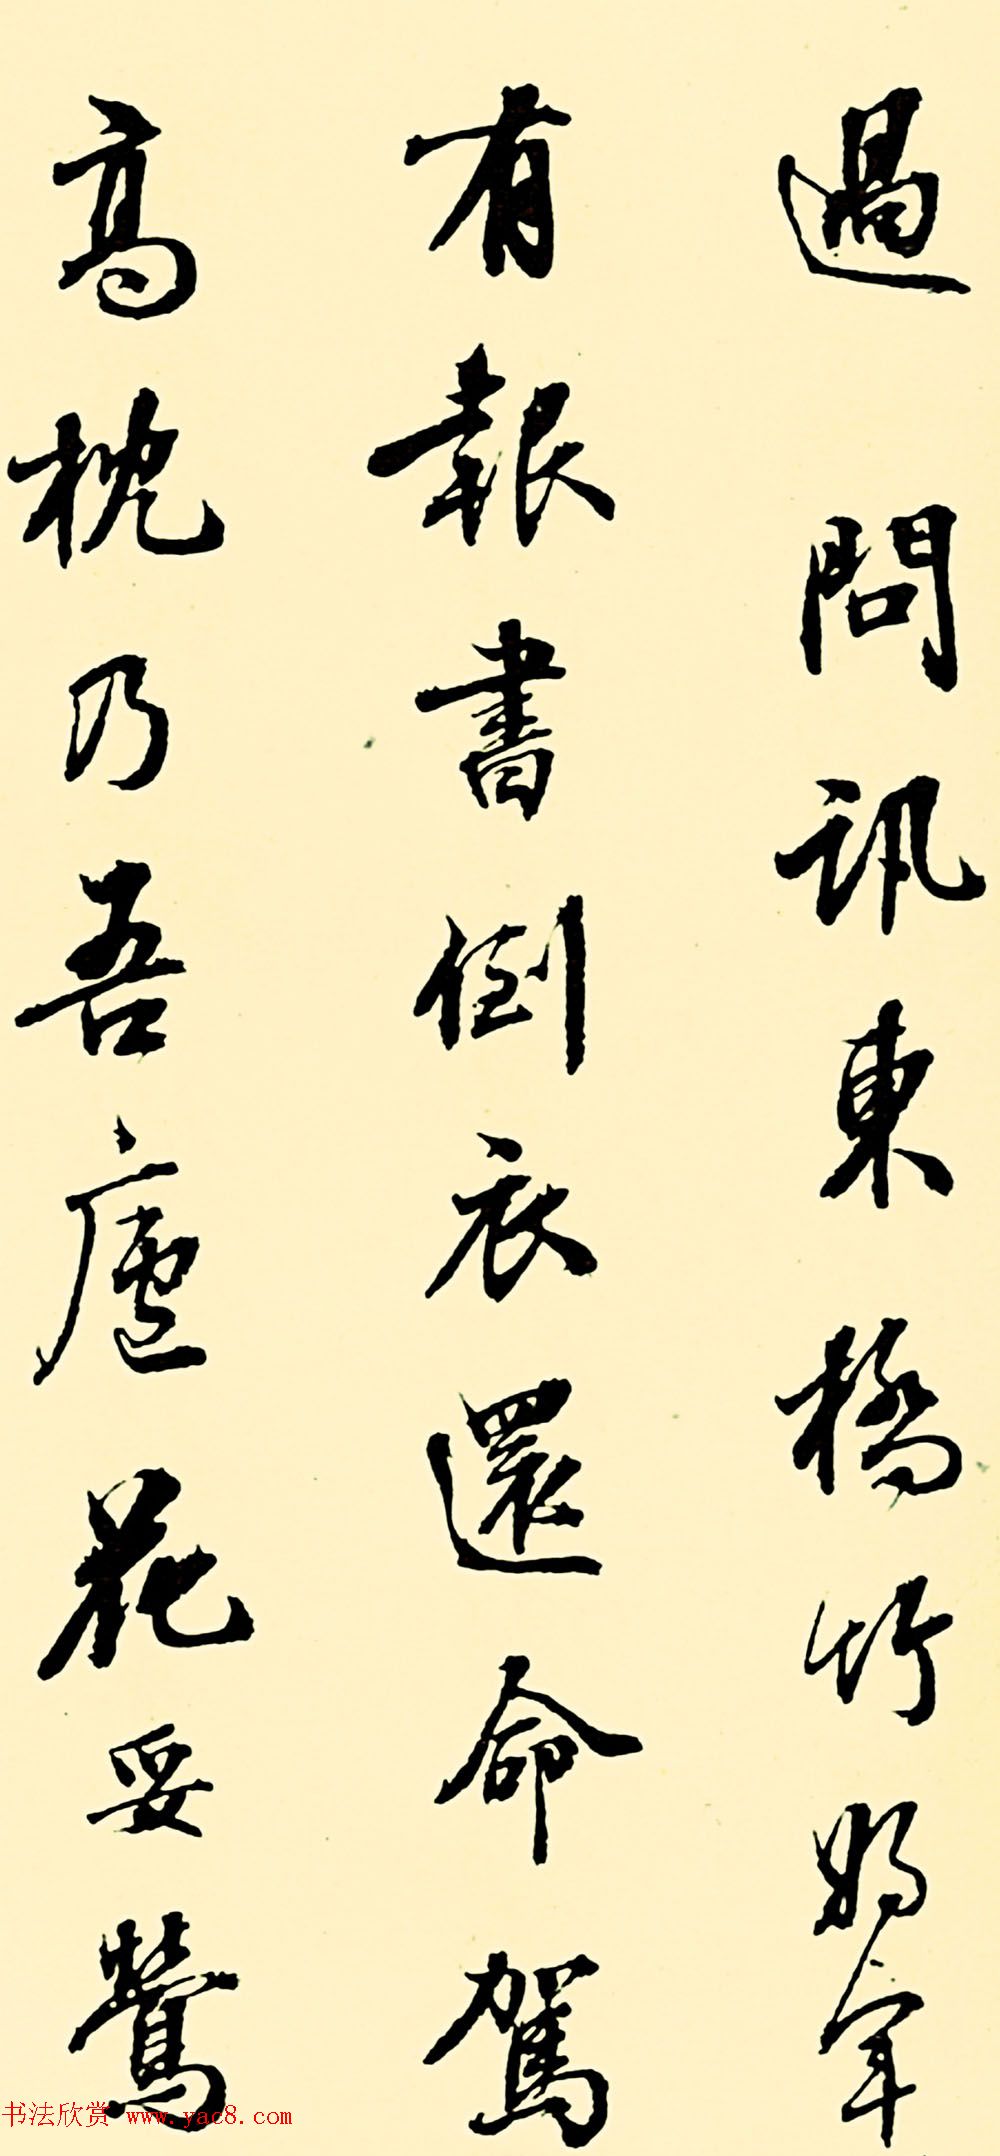 過問訊東橋竹將軍
有報書倒衣還命駕
高枕乃吾廬花妥鶯
书法欣赏 www.yac8.com